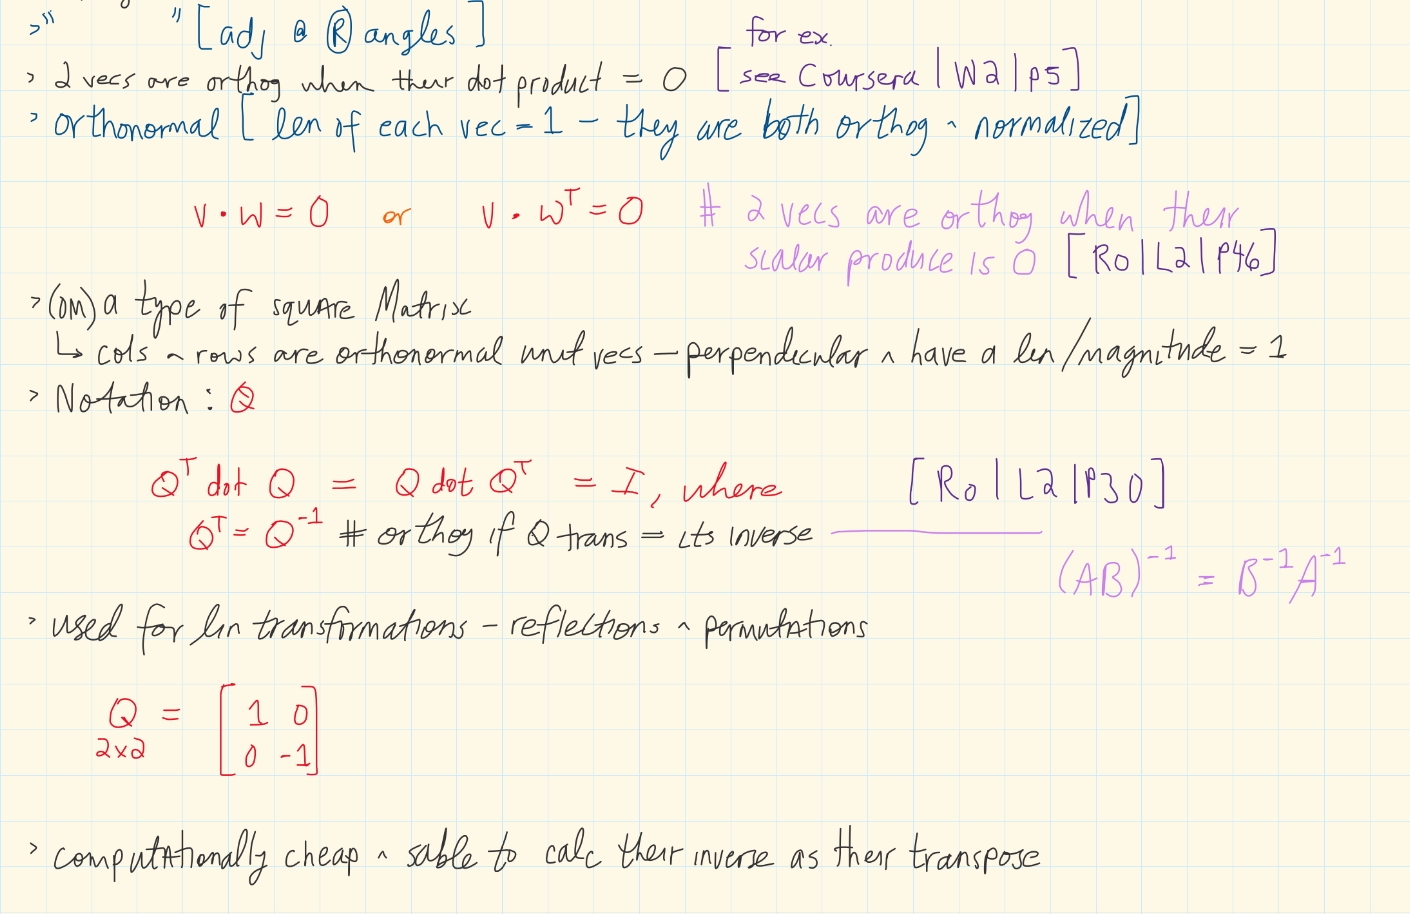 >" " [adj @ Ⓡ angles]
for ex.
> 2 vecs are orthog when their dot product = 0 [see Coursera | W2 | p5]
> orthonormal [len of each vec = 1 - they are both orthog ^ normalized]
v · w = 0 or v · wᵀ = 0 # 2 vecs are orthog when their
scalar produce is 0 [Ro | L2 | P46]
> (OM) a type of square Matrix
↳ cols ^ rows are orthonormal unit vecs - perpendicular ^ have a len/magnitude = 1
> Notation : Q
Qᵀ dot Q = Q dot Qᵀ = I, where [Ro | L2 | P30]
Qᵀ = Q⁻¹ # orthog if Q trans = its inverse
(AB)⁻¹ = B⁻¹A⁻¹
> used for lin transformations - reflections ^ permutations
Q = [1 0
2x2 0 -1]
> computationally cheap ^ sable to calc their inverse as their transpose